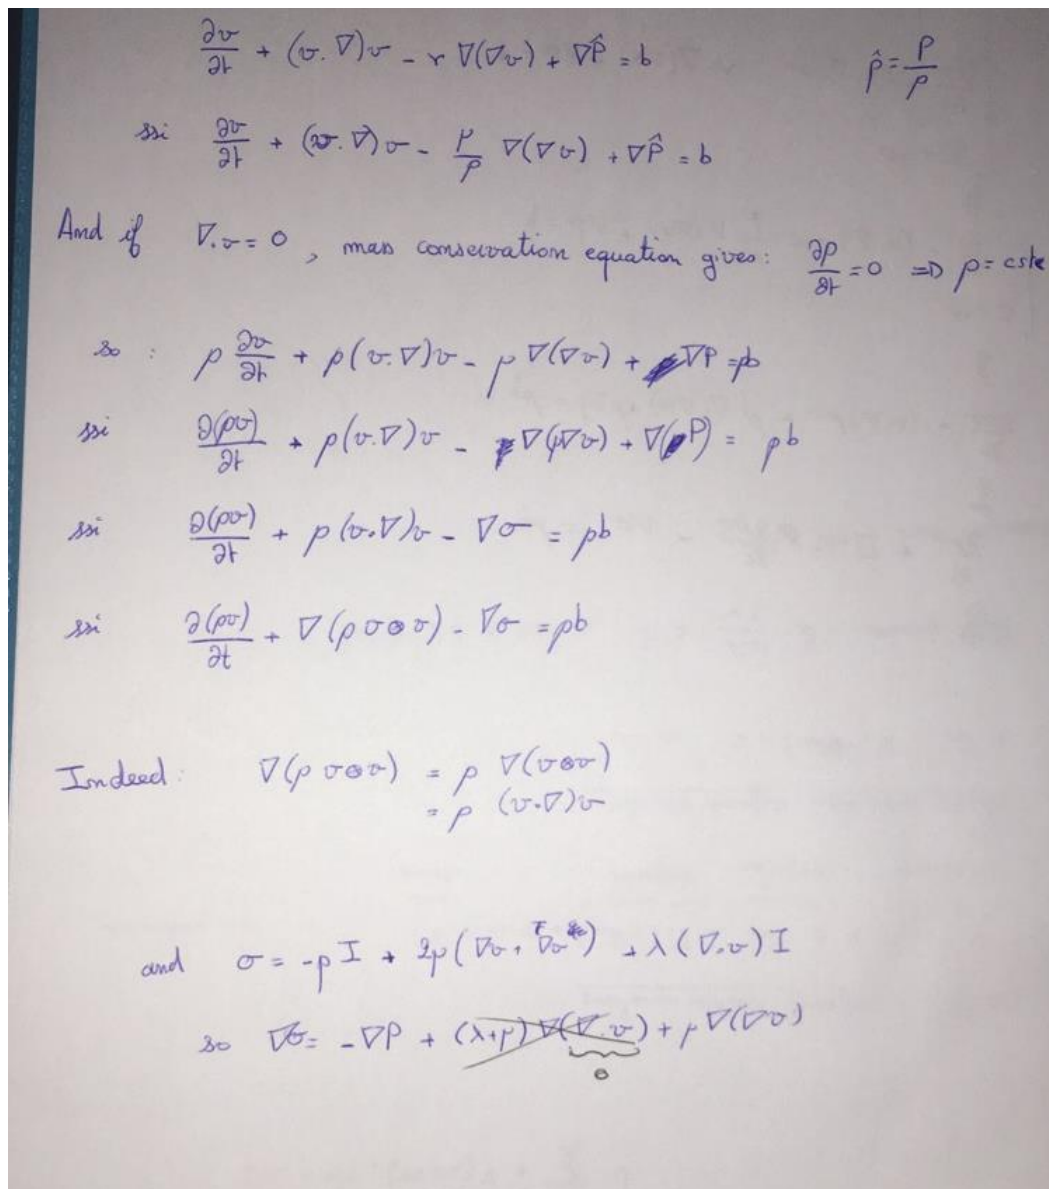 ∂v/∂t + (v.∇)v - r ∇(∇v) + ∇P̂ = b     p̂ = P/ρ
ssi ∂v/∂t + (v.∇)v - μ/ρ ∇(∇v) + ∇P̂ = b
And if ∇.v = 0 , mass conservation equation gives: ∂ρ/∂t = 0 => ρ = cste
so : ρ ∂v/∂t + ρ(v.∇)v - μ ∇(∇v) + ∇P = ρb
ssi ∂(ρv)/∂t + ρ(v.∇)v - ∇(μ∇v) + ∇(P) = ρb
ssi ∂(ρv)/∂t + ρ(v.∇)v - ∇σ = ρb
ssi ∂(ρv)/∂t + ∇(ρ v⊗v) - ∇σ = ρb
Indeed: ∇(ρ v⊗v) = ρ ∇(v⊗v)
= ρ (v.∇)v
and σ = -pI + 2μ(∇v + ᵀ∇v) + λ(∇.v)I
so ∇σ = -∇P + (λ+μ) ∇(∇.v) + μ ∇(∇v)
0